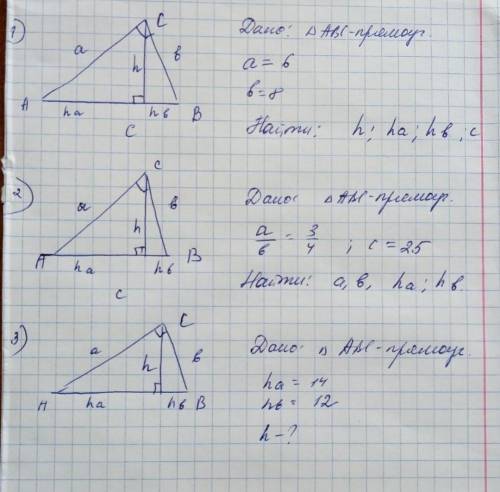 1)
C
a
в
h
A
hа
hв
B
C
Дано: △ABC-прямоуг.
a = 6
в = 8
Найти: h; hа; hв; c
2)
C
a
в
h
A
hа
hв
B
c
Дано: △ABC-прямоуг.
a/в = 3/4 ; c = 25
Найти: a, в, hа; hв.
3)
C
a
в
h
A
hа
hв
B
Дано: △ABC-прямоуг.
hа = 14
hв = 12
h - ?